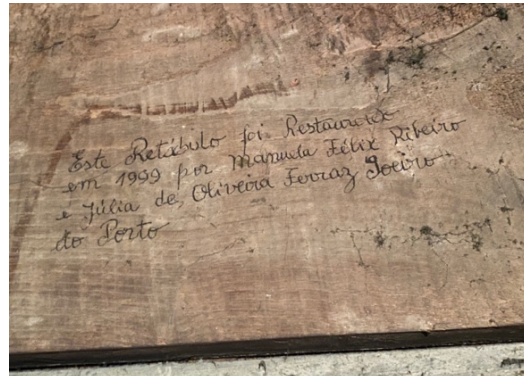 Este Retábulo foi Restaurado
em 1999 por Manuela Félix Ribeiro
e Júlia de Oliveira Ferraz Joeiro
do Porto